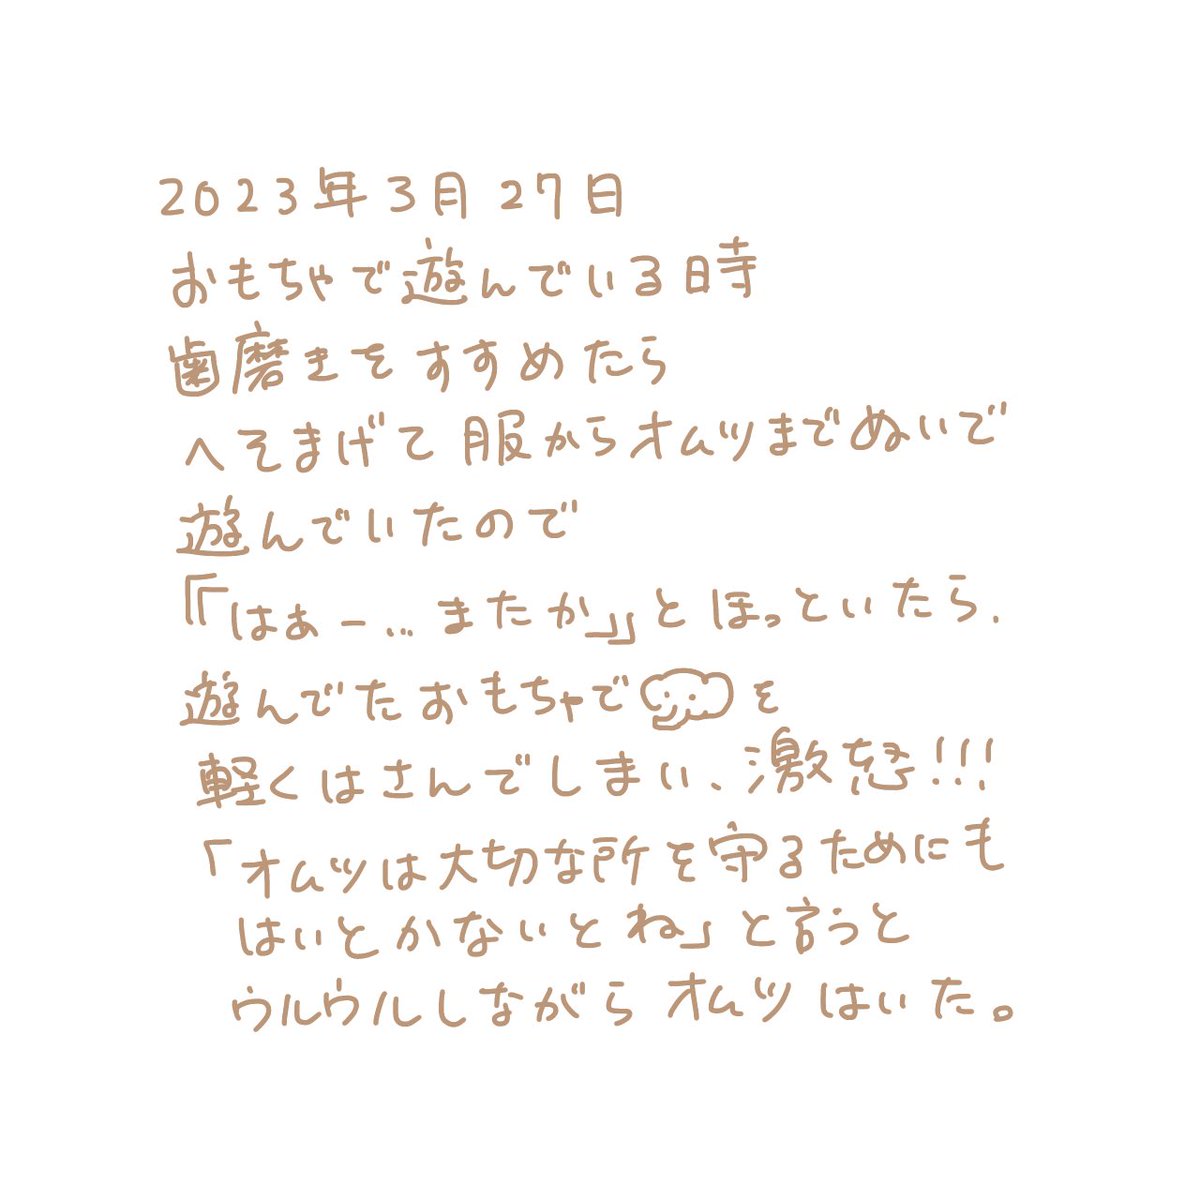 2023年3月27日
おもちゃで遊んでいる時
歯磨きをすすめたら
へそまげて服からオムツまでぬいで
遊んでいたので
『「はぁー…またか」』とほっといたら、
遊んでたおもちゃでを
軽くはさんでしまい、激怒!!!
「オムツは大切な所を守るためにも
はいとかないとね」と言うと
ウルウルしながらオムツはいた。